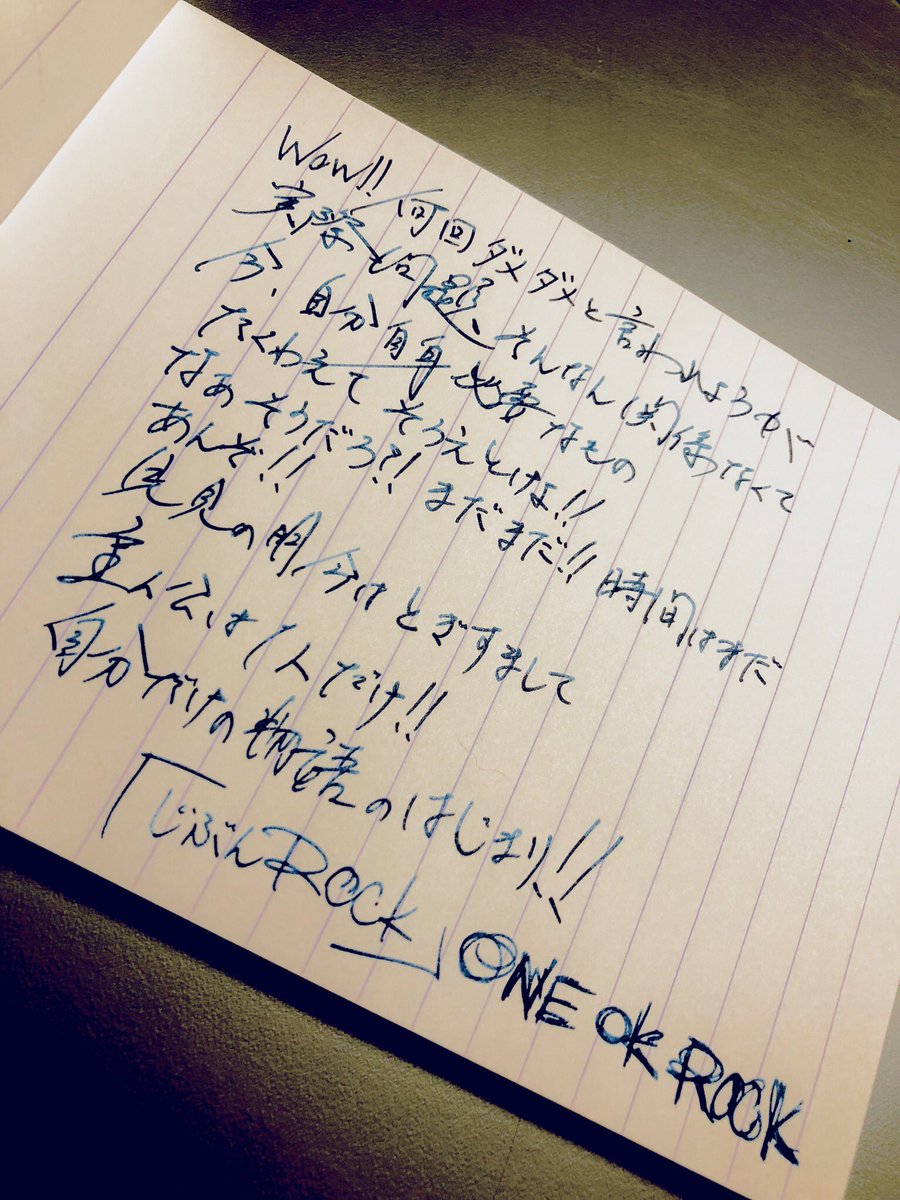 Wow!! 何回ダメダメと言われようが
実際問題、そんなん関係なくて
今、自分自身必要なもの
たくわえて そろえとけな!!
なあそうだろ?! まだまだ!! 時間はまだ
あんぞ!!
先見の明 今はとぎすまして
主人公は1人だけ!!
自分だけの物語のはじまり!!
「じぶんROCK」ONE OK ROCK